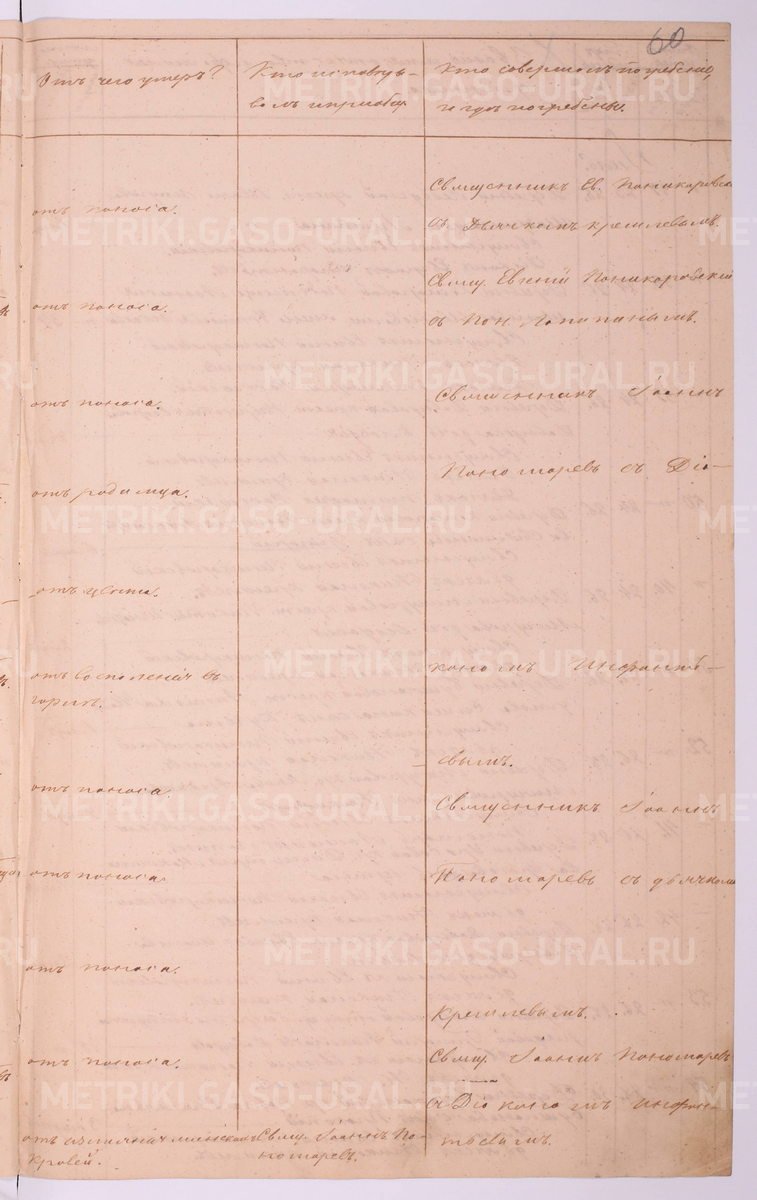 60
Отъ чего умеръ?
Кто исповѣды-
валъ и приобщ.
Кто совершалъ погребеніе,
и гдѣ погребены.
отъ поноса.
Священникъ Ев. Поникаровскі
съ Дьячкомъ Кремлевымъ.
отъ поноса.
Свящ. Евгеній Поникаровскій
съ Пон. Лопатинымъ.
отъ поноса.
Священникъ Іоаннъ
Пономаревъ съ Діа-
отъ родимца.
отъ цынги.
кономъ Инфанть-
отъ воспаленія въ
горлѣ.
евымъ.
отъ поноса.
Священникъ Іоаннъ
отъ поноса.
Пономаревъ съ дьячкомъ
отъ поноса.
Кремлевымъ.
отъ поноса.
Свящ. Іоаннъ Пономаревъ
съ Діакономъ Инфан-
тьевымъ.
отъ
кровей.
Свящ. Іоаннъ По-
номаревъ.
METRIKI.GASO-URAL.RU